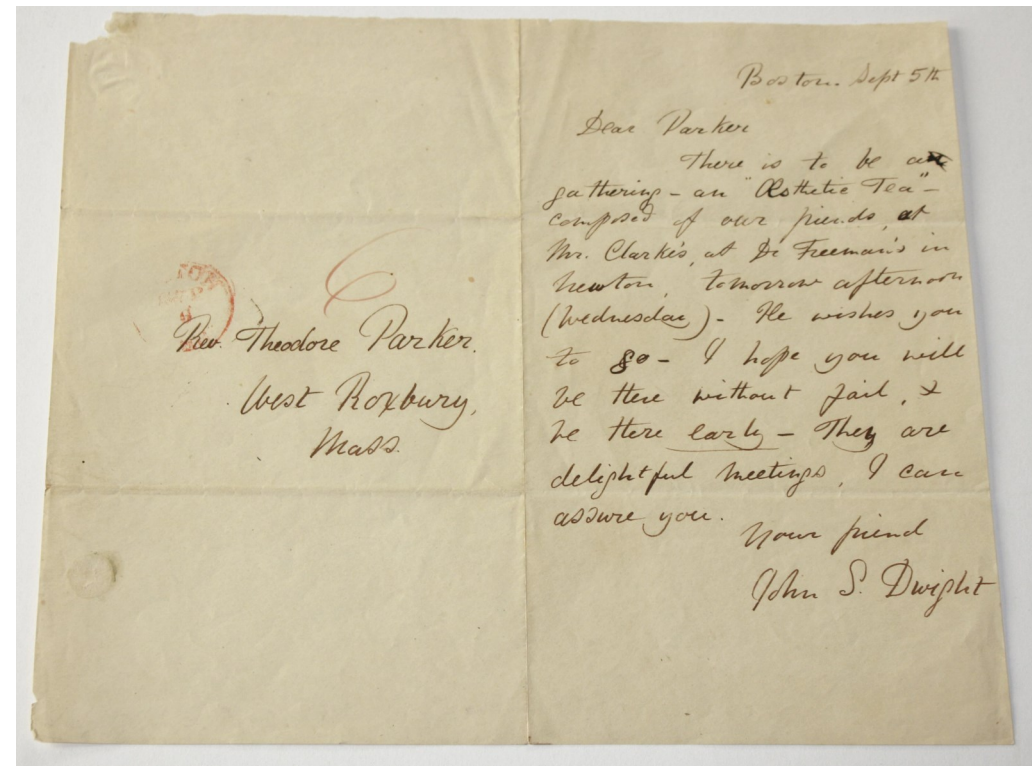 6
Rev. Theodore Parker.
West Roxbury,
Mass.
Boston. Sept 5th
Dear Parker
There is to be a
gathering – an "Æsthetic Tea" –
composed of our friends, at
Mr. Clarke's, at Dr Freeman's in
Newton, tomorrow afternoon
(Wednesday) – He wishes you
to go – I hope you will
be there without fail, &
be there early – They are
delightful meetings, I can
assure you.
Your friend
John S. Dwight